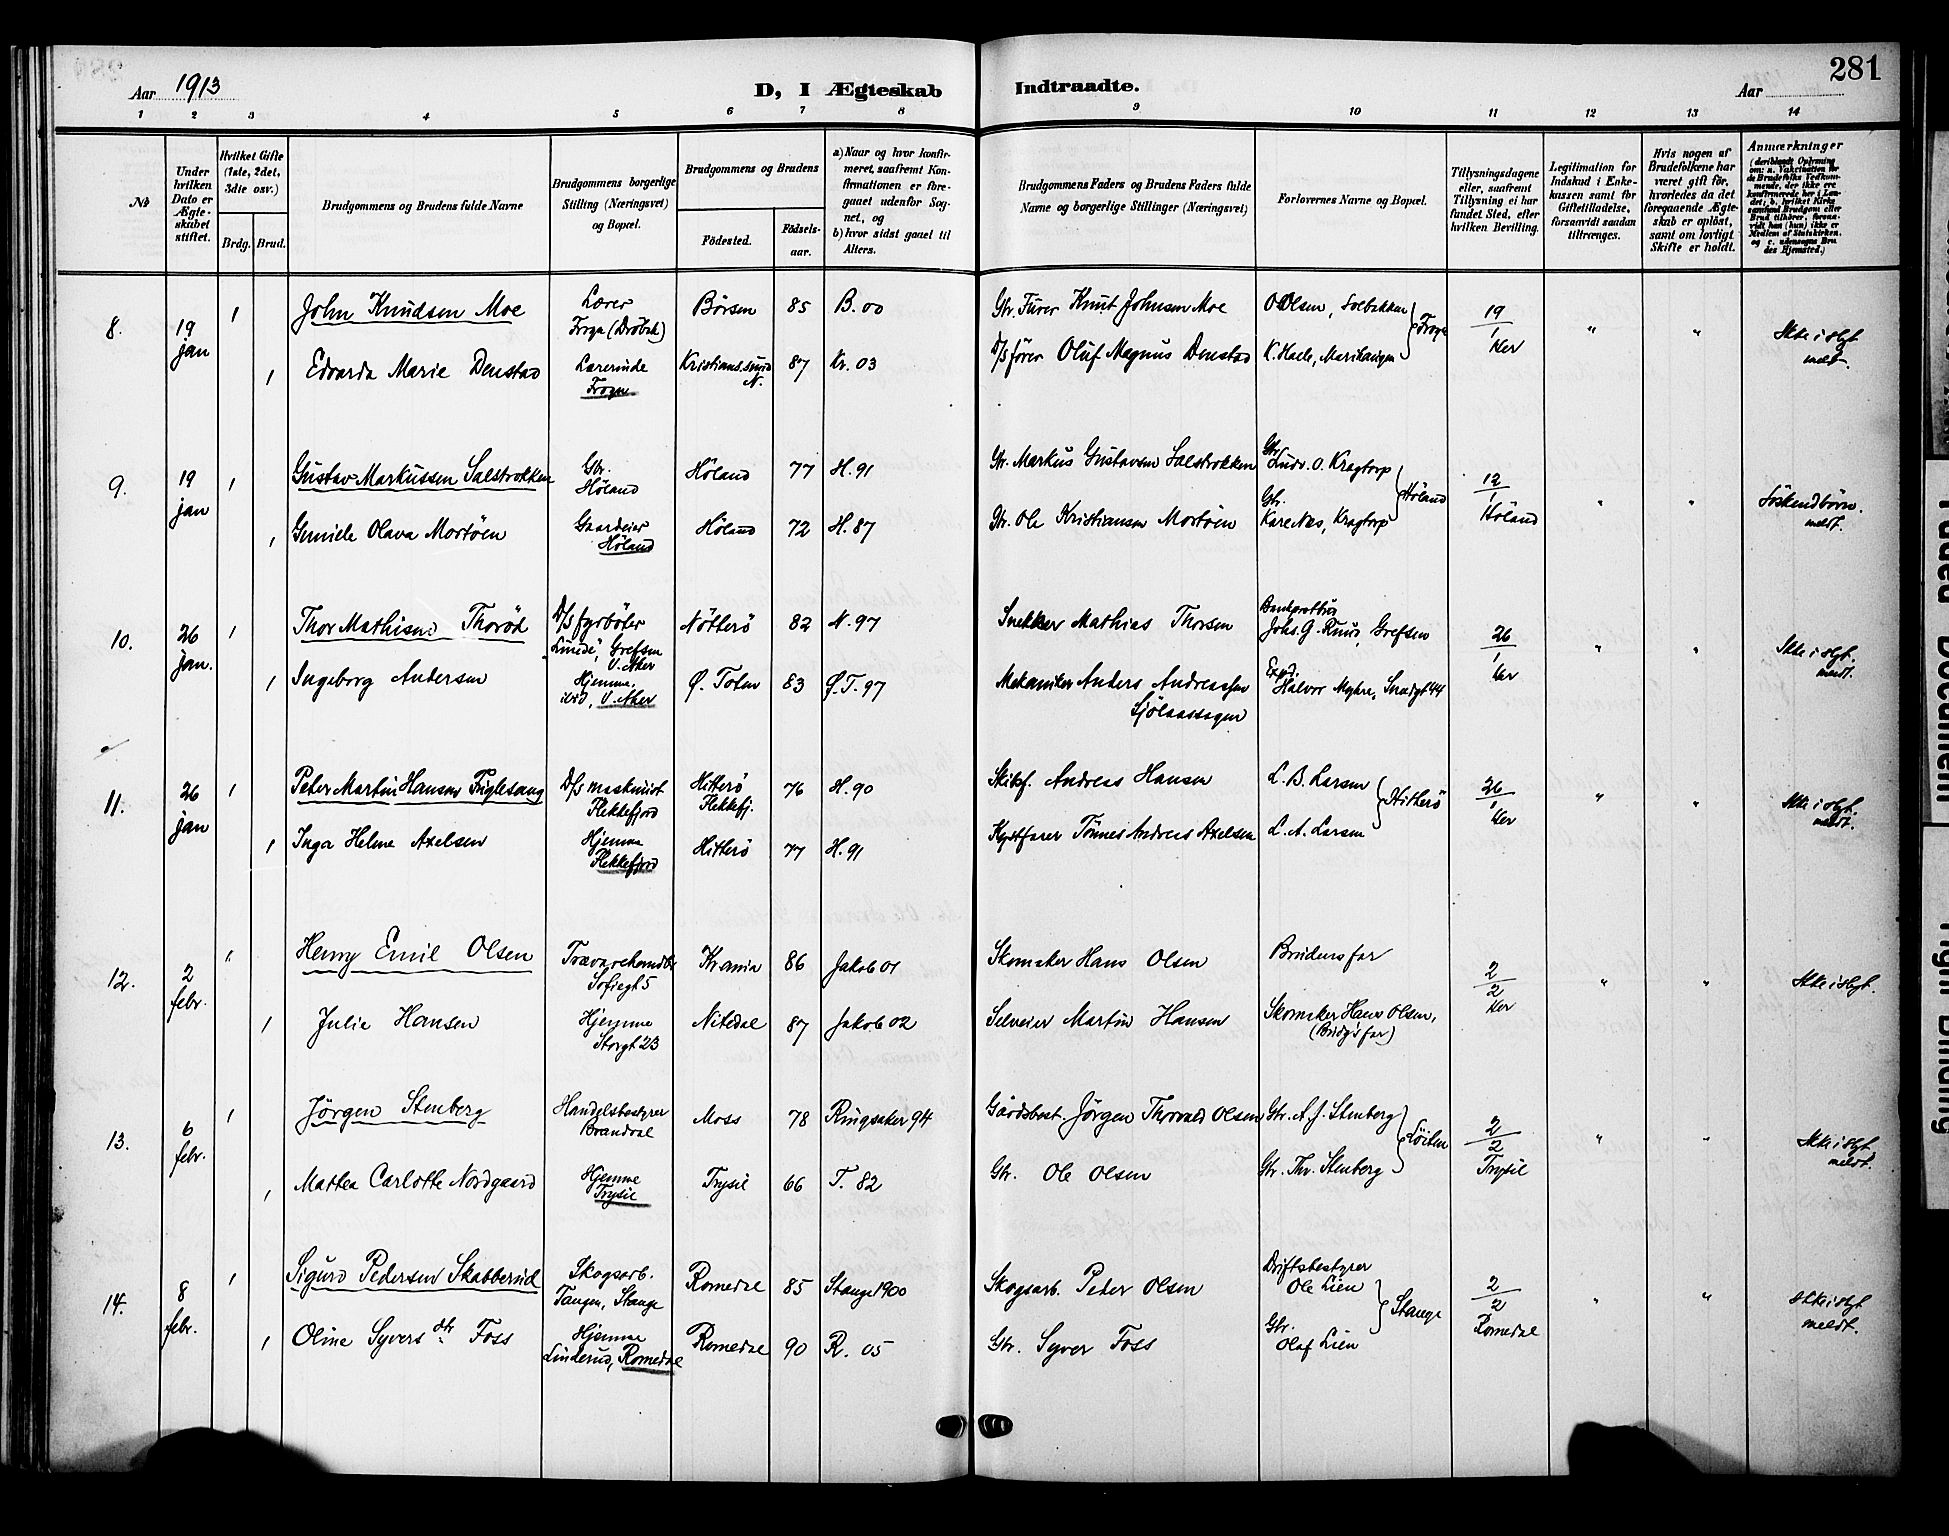 281
Aar 1913
D, I Ægteskab Indtraadte.
Aar
1 2 3 4 5 6 7 8 9 10 11 12 13 14
No
Under hvilken Dato er Ægteskabet stiftet.
Hvilket Gifte (1ste, 2det, 3die osv.)
Brdg. Brud.
Brudgommens og Brudens fulde Navne
Brudgommens borgerlige Stilling (Næringsvei) og Bopæl.
Brudgommens og Brudens
Fødested. Fødselsaar.
a) Naar og hvor konfirmeret, saafremt Konfirmationen er foregaaet udenfor Sognet, og
b) hvor sidst gaaet til Alters.
Brudgommens Faders og Brudens Faders fulde Navne og borgerlige Stillinger (Næringsvei)
Forlovernes Navne og Bopæl.
Tillysningsdagene eller, saafremt Tillysning ei har fundet Sted, efter hvilken Bevilling.
Legitimation for Indskud i Enkekassen samt for Giftetilladelse, forsaavidt saadan tiltrænges.
Hvis nogen af Brudefolkene har været gift før, hvorledes da det foregaaende Ægteskab er opløst, samt om lovligt Skifte er holdt.
Anmærkninger
(deriblandt Oplysning om: a. Vaksination for de Brudefolks Vedkommende, der ikke ere konfirmerede her i Landet; b. hvilket Kirkesamfund Brudgom eller Brud tilhører, forsaavidt han (hun) ikke er Medlem af Statskirken, og c. udensogns Brudes Hjemsted.)
8. 19 jan 1 John Knudsen Moe Lærer Frogn (Drøbak) Børsen 85 B. 00 Gbr. Furer Knut Johnsen Moe O. Olsen, Solbakken } Frogn 19/1 Her " " Ikke i slgt. meldt.
1 Edvarda Marie Denstad Lærerinde Frogn Kristianssund N. 87 Kr. 03 D/s fører Oluf Magnus Denstad K. Hasle, Marihaugen
9. 19 jan 1 Gustav Markussen Salstrokken Gbr. Høland Høland 77 H. 91 Gbr. Markus Gustavsen Salstrokken Gbr. Ludv. O. Kragtorp } Høland 12/1 Høland " " Söskendbörn. meldt.
1 Gunilde Olava Mortöen Gaardeier Höland Höland 72 H. 87 Gbr. Ole Kristiansen Mortöen Gbr. Kare Næs, Kragtorp
10. 26 jan. 1 Thor Mathisen Thorød D/s fyrbøter Linde, Grefsen V. Aker Nötterö 82 N. 97 Snekker Mathias Thorsen Johs. G. Ruud, Grefsen 26/1 Her " " Ikke i slgt. meldt.
1 Ingeborg Andersen Hjemme, ibid, V. Aker Ø. Toten 83 Ø. T. 97 Mekaniker Anders Andreassen Sjölaastagen Exp. Halvor Myhre,
11. 26 jan 1 Peter Martin Hansen Fuglesang D/s maskinist Flekkefjord Hitterö Flekkefj. 76 H. 90 Skibsf. Andreas Hansen L. B. Larsen } Hitterö 26/1 Her " " Ikke i slgt. meldt.
1 Inga Helene Axelsen Hjemme Flekkefjord Hitterö 77 H. 91 Kystfarer Tönnes Andreas Axelsen L. A. Larsen
12. 2 febr. 1 Henry Emil Olsen Trævarehandler Sofiegt 5 Kr.ania 86 Jakob 01 Skomaker Hans Olsen Brudens far 2/2 Her " " Ikke i slgt.
1 Julie Hansen Hjemme Storgt 23 Nitedal 87 Jakob 02 Selveier Martin Hansen Skomaker Hans Olsen, (Brudg's far)
13. 6 febr. 1 Jörgen Stenberg Handelsbestyrer Brandval Moss 78 Ringsaker 94 Gårdsbest. Jörgen Thorvald Olsen Gbr. A. J. Stenberg } Löiten 2/2 Trysil " " Ikke i slgt. meldt.
1 Mattea Carlotte Nordgaard Hjemme Trysil Trysil 66 T. 82 Gbr. Ole Olsen Gbr. Thr. Stenberg
14. 8 febr. 1 Sigurd Pedersen Skabberud Skogsarb. Tangen, Stange Romedal 85 Stange 1900 Skogsarb. Peder Olsen Driftsbestyrer Ole Lien } Stange 2/2 Romedal " " Ikke i slgt. meldt.
1 Oline Syversdtr. Foss Hjemme Linderud, Romedal Romedal 90 R. 05 Gbr. Syver Foss Gbr. Olaf Lien